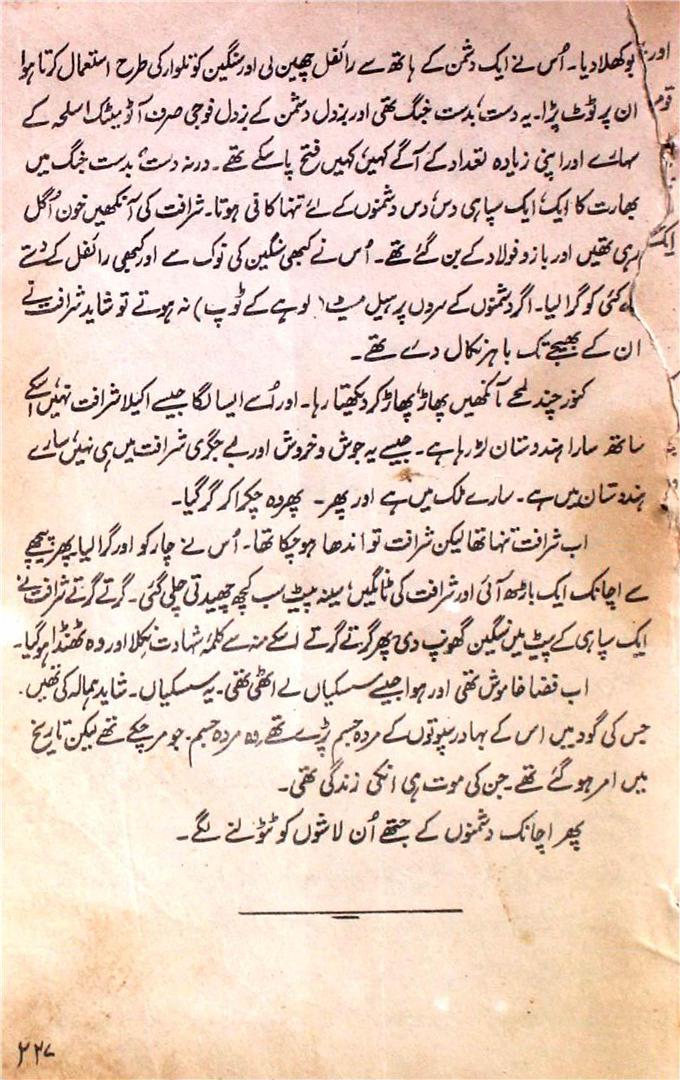 بوکھلا دیا۔ اُس نے ایک دشمن کے ہاتھ سے رائفل چھین لی اور سنگین کو تلوار کی طرح استعمال کرتا ہوا
ان پر ٹوٹ پڑا۔ یہ دست بدست جنگ تھی اور بزدل دشمن کے بزدل فوجی صرف آٹومیٹک اسلحہ کے
سہارے اور اپنی زیادہ تعداد کے آگے کہیں کہیں فتح پا سکے تھے۔ ورنہ دست بدست جنگ میں
بھارت کا ایک ایک سپاہی دس دس دشمنوں کے لئے تنہا کافی ہوتا۔ شرافت کی آنکھیں خون اُگل
رہی تھیں اور بازو فولاد کے بن گئے تھے۔ اُس نے کبھی سنگین کی نوک سے اور کبھی رائفل کے دستے
کئی کو گرا لیا۔ اگر دشمنوں کے سروں پر ہیل میٹ (لوہے کے ٹوپ) نہ ہوتے تو شاید شرافت نے
ان کے بھیجے تک باہر نکال دئے تھے۔
کنور چند لمحے آنکھیں پھاڑ پھاڑ کر دیکھتا رہا۔ اور اُسے ایسا لگا جیسے اکیلا شرافت نہیں اسکے
ساتھ سارا ہندوستان لڑ رہا ہے۔ جیسے یہ جوش و خروش اور بے جگری شرافت میں ہی نہیں سارے
ہندوستان میں ہے۔ سارے ملک میں ہے اور پھر۔ پھر وہ چکرا کر گر گیا۔
اب شرافت تنہا تھا لیکن شرافت تو اندھا ہو چکا تھا۔ اُس نے چار کو اور گرا لیا پھر پیچھے
سے اچانک ایک باڑھ آئی اور شرافت کی ٹانگیں، سینہ پیٹ سب کچھ چھیدتی چلی گئی۔ گرتے گرتے شرافت نے
ایک سپاہی کے پیٹ میں سنگین گھونپ دی پھر گرتے گرتے اسکے منہ سے کلمۂ شہادت نکلا اور وہ ٹھنڈا ہو گیا۔
اب فضا خاموش تھی اور ہوا جیسے سسکیاں لے اٹھی تھی۔ یہ سسکیاں۔ شاید ہمالہ کی تھیں۔
جس کی گود میں اس کے بہادر سپوتوں کے مردہ جسم پڑے تھے وہ مردہ جسم۔ جو مر چکے تھے لیکن تاریخ
میں امر ہو گئے تھے۔ جن کی موت ہی انکی زندگی تھی۔
پھر اچانک دشمنوں کے جتھے اُن لاشوں کو ٹٹولنے لگے۔
۲۲۷
اور
قوم
ایک